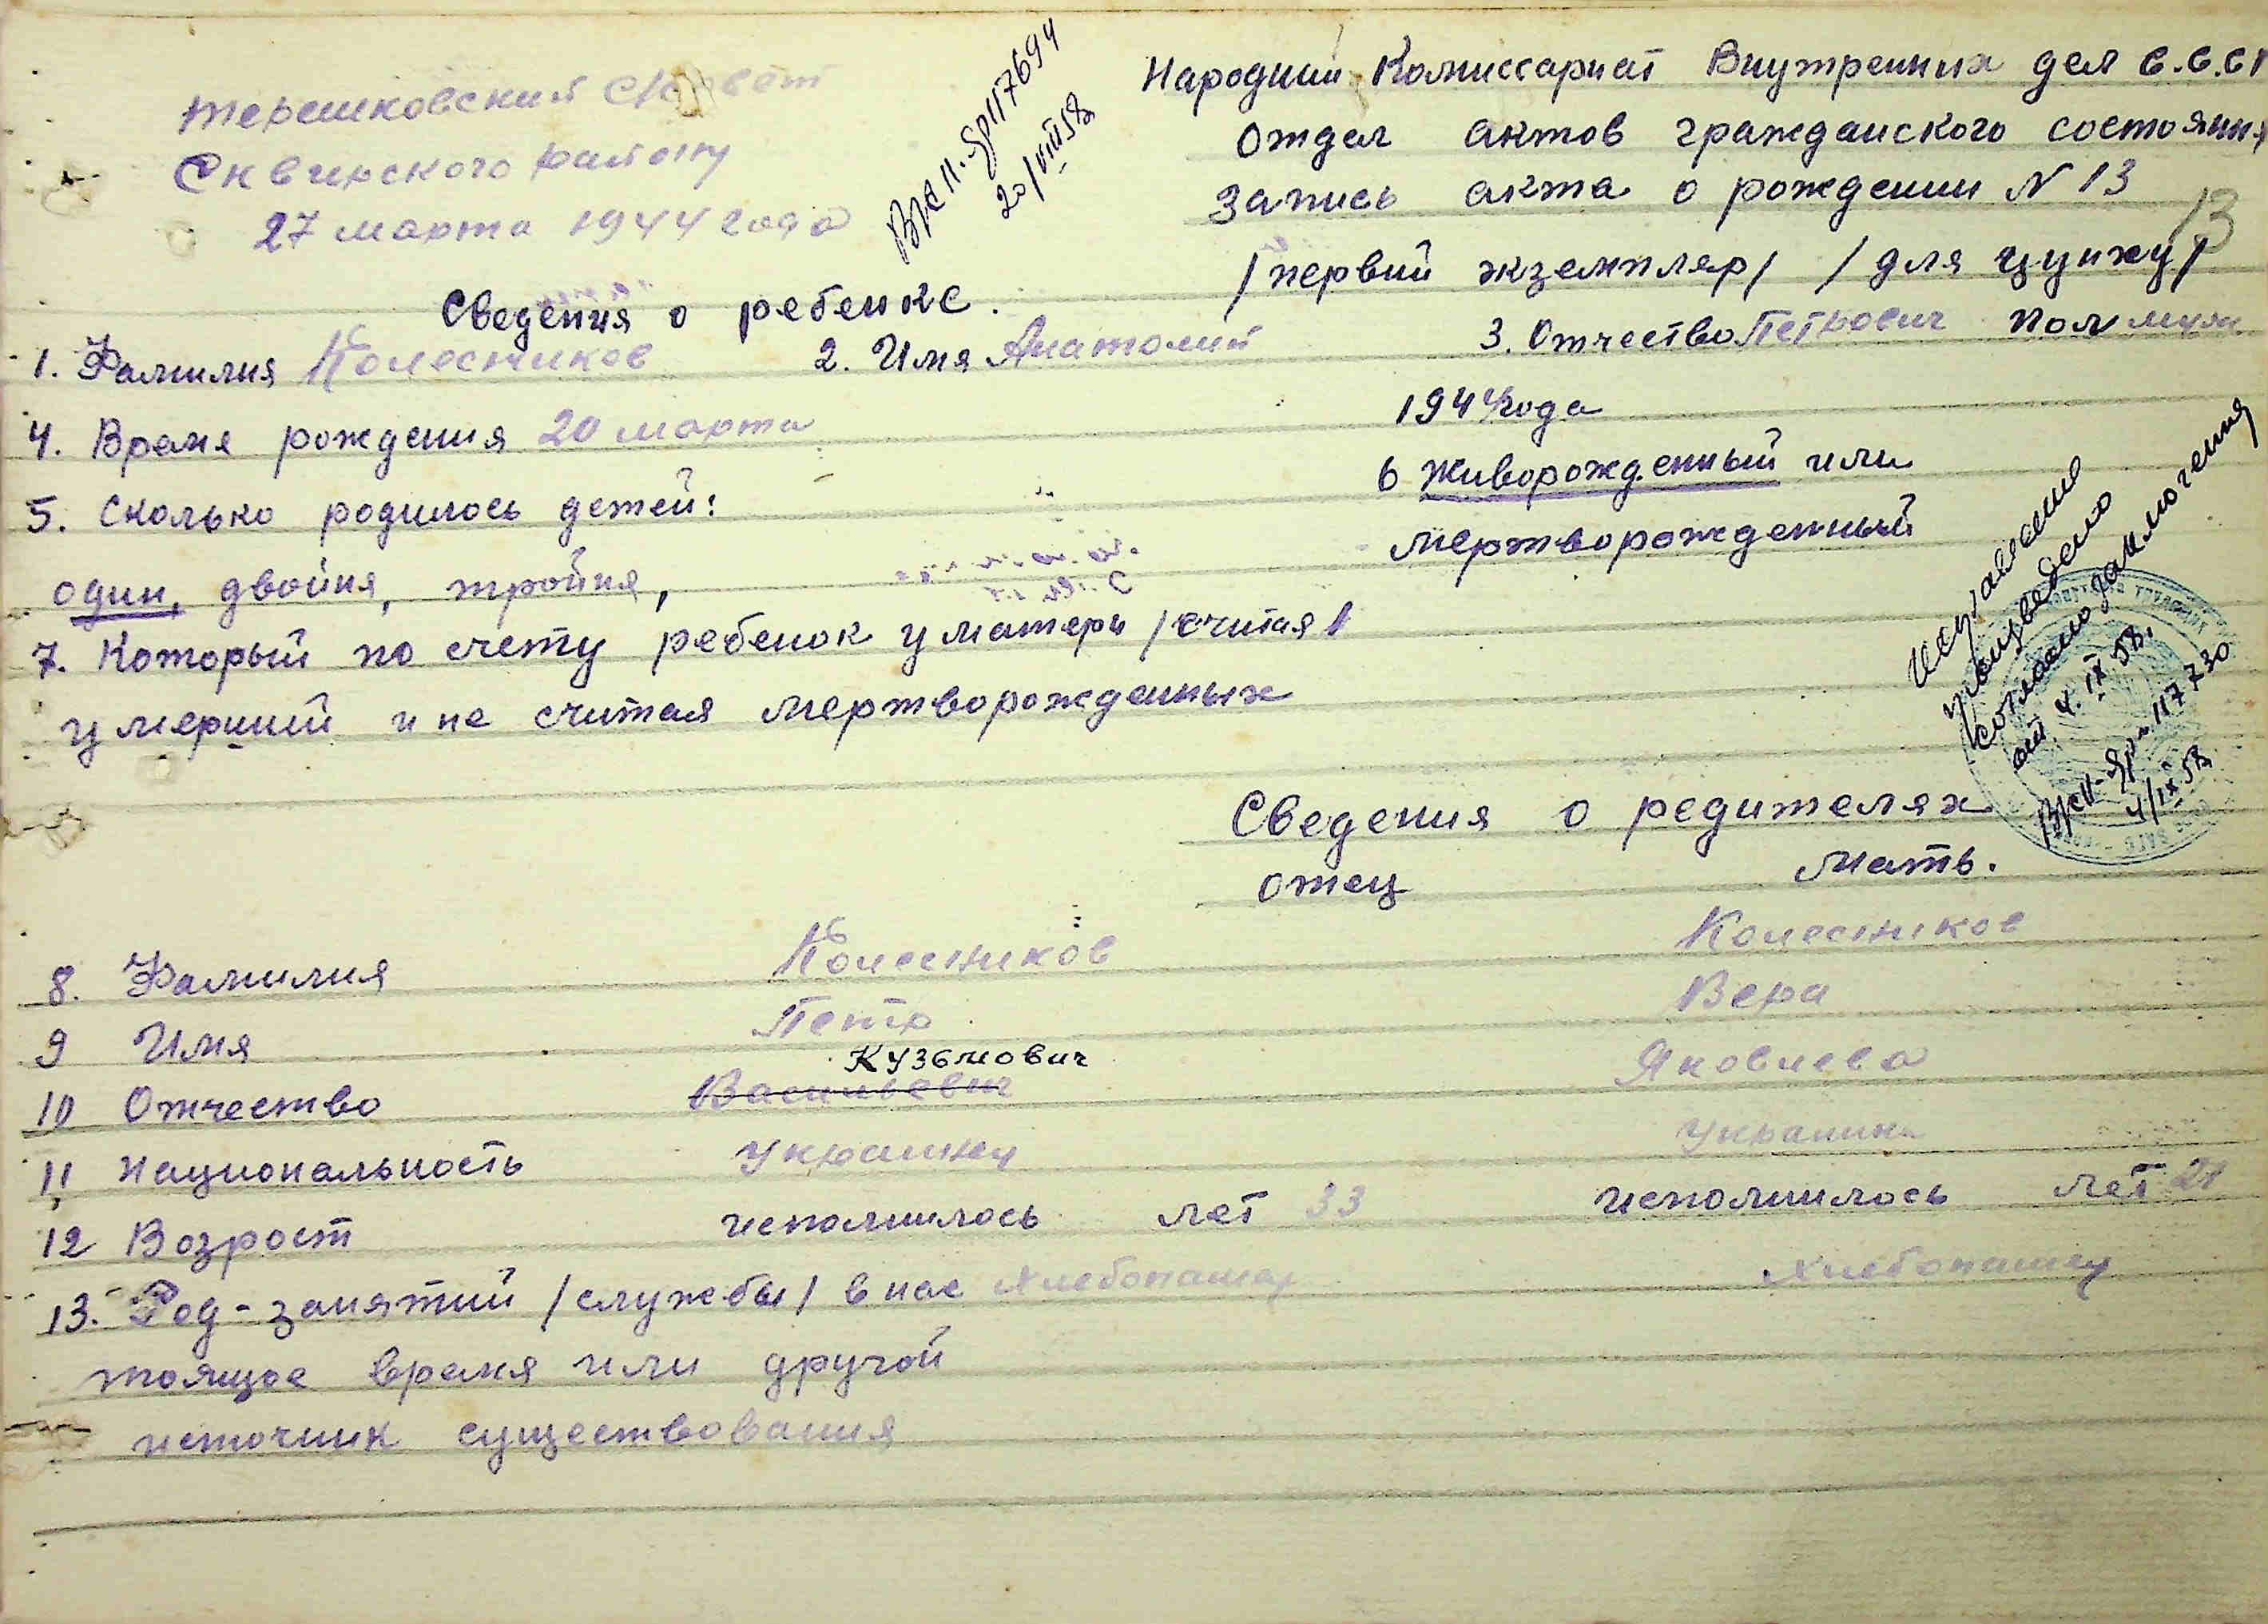 Терешковский с/совет
Сквирского району
27 марта 1944 года
Народний Комиссариат Внутренних дел С.С.С
Отдел актов гражданского состояния
Запись акта о рождении N 13
13
/первий экземпляр/ /для цунху/
117694
20/VIII 58
Сведения о ребенке.
1. Фамилия Колесников 2. Имя Анатолий 3. Отчество Петрович Пол муж
4. Время рождения 20 марта 1944 года
5. Сколько родилось детей: 6 Живорожденный или
один, двойня, тройня, мертворожденный
7. Который по счету ребенок у матери /считая
умерший и не считая мертворожденных
Исправления
произведено
согласно заключения
от 4.IX 58.
117730
4/IX 58
Сведения о редителях
отец мать.
8. Фамилия Колесников Колесников
9 Имя Петр Вера
Кузьмович
10 Отчество Васильевич Яковлева
11 Национальность Украинец Украинк
12 Возрост исполнилось лет 33 исполнилось лет 21
13. Род-занятий /службы/ в нас хлебопашец хлебопашец
тоящое время или другой
источник существования